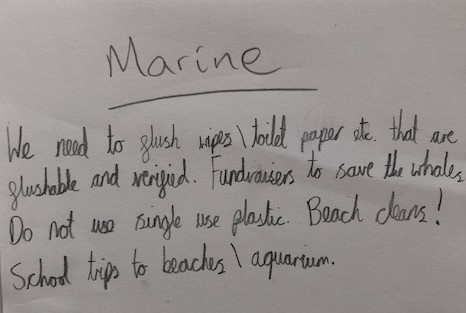 Marine
We need to flush wipes\toilet paper etc. that are
flushable and verified. Fundraisers to save the whales
Do not use single use plastic. Beach cleans!
School trips to beaches\aquarium.